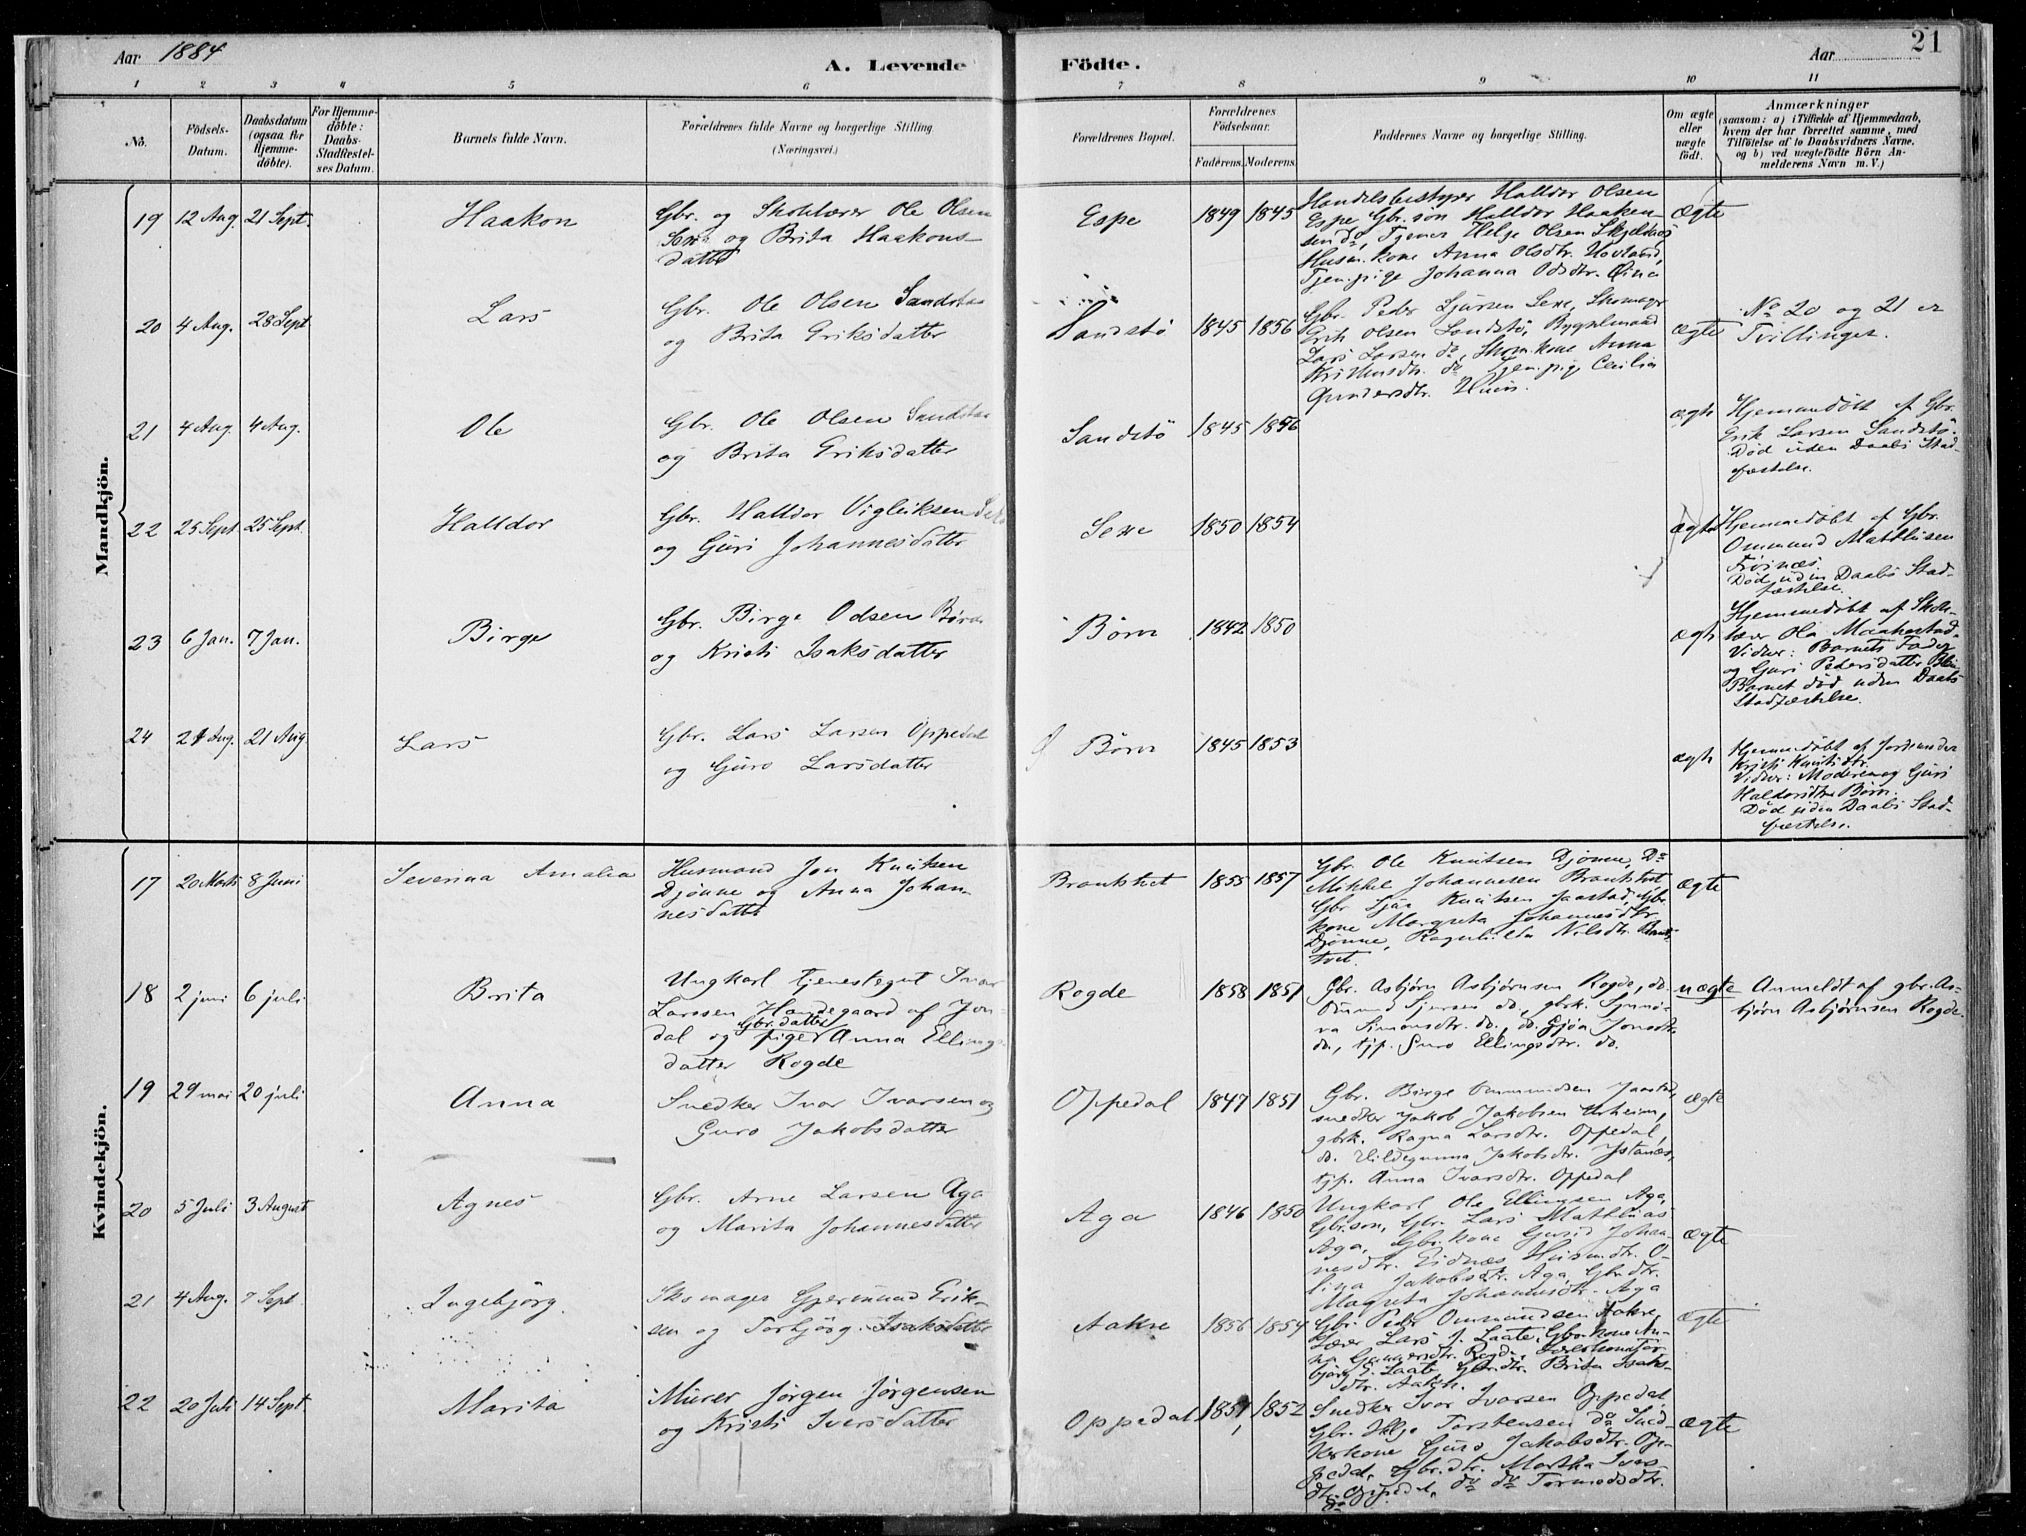 Aar 1884
A. Levende Födte.
Aar
21
1 2 3 4 5 6 7 8 9 10 11
No.
Födsels-Datum.
Daabsdatum (ogsaa for Hjemme-döbte).
For Hjemme-döbte: Daabs-Stadfæstel-ses Datum.
Barnets fulde Navn.
Forældrenes fulde Navne og borgerlige Stilling (Næringsvei.)
Forældrenes Bopæl.
Forældrenes Födselsaar.
Faderens. Moderens.
Faddernes Navne og borgerlige Stilling.
Om ægte eller uægte födt.
Anmærkninger
(saasom: a) i Tilfælde af Hjemmedaab,
hvem der har forrettet samme, med
Tilföielse af to Daabsvidners Navne,
og b) ved uægtefödte Börn An-
melderens Navn m. V.)
Mandkjön.
19 12 Aug. 21 Sept. Haakon
Gbr. og Skolelærer Ole Olsen
og Brita Haakons-
datter
Espe 1849 1845
Handelsbestyrer Halldor Olsen
Espe Gbr. søn Halldor Haaken-
sen do, Tjener Helge Olsen
Husm. kone Anna Olsdtr. Hovland,
Tjen.pige Johanna Odsdtr.
ægte
20 4 Aug. 28 Sept Lars
Gbr. Ole Olsen Sandstø
og Brita Eriksdatter
Sandstø 1845 1856
Gbr. Peder Sjursen Sexe, Skomager
Erik Olsen Sandstø, Bygselmand
Lars Larsen do, Skom.kone Anna
do Tjen.pige Cecilia
Gundersdtr.
ægte
No 20 og 21 er
Tvillinger.
21 4 Aug. 4 Aug. Ole
Gbr. Ole Olsen Sandstø
og Brita Eriksdatter
Sandstø 1845 1856
ægte
Hjemmedøbt af Gbr.
Erik Larsen Sandstø.
Død uden Daabs Stad-
fæstelse.
22 25 Sept 25 Sept. Halldor
Gbr. Halldor Vigleiksen Sexe
og Guri Johannesdatter
Sexe 1850 1854
ægte
Hjemmedøbt af Gbr.
Ommund Matthisen
Frøinæs
Død uden Daabs Stad-
fæstelse.
23 6 Jan. 7 Jan. Birge
Gbr. Birge Odsen Børve
og Kristi Isaksdatter
Børve 1842 1850
ægte
Hjemmedøbt af Skole-
lærer Ola Maakestad.
Vidner: Barnets Fader
og Guri Pedersdatter
Barnet død uden Daabs
Stadfæstelse.
24 21 Aug. 21 Aug. Lars
Gbr. Lars Larsen Oppedal
og Guro Larsdatter
Børve 1845 1853
ægte
Hjemmedøbt af Jordmoder
Kristi Knutsdtr.
Vidner: Moderen og Guri
Haldorsdtr. Børve.
Død uden Daabs Stad-
fæstelse.
Kvindekjön.
17 20 Marts 8 Juni Severina Amalia
Husmand Jon Knutsen
Djønne og Anna Johan-
nesdatter
Brantstvet 1855 1857
Gbr. Ole Knutsen Djønne, Do
Mikkel Johannesen Brantstvet
Gbr. Sjur Knutsen Jaastad, Gbr.
kone Margreta Johannesdtr.
Djønne, Ragnhilda Nilsdtr. Brant-
tvet.
ægte
18 2 juni 6 juli Brita
Ungkarl tjenestegut Ivar
Larssen Handegaard af Jon-
dal og Gbr.datter pige Anna Ellings-
datter Rogde
Rogde 1858 1851
Gbr. Asbjørn Asbjørnsen Rogde, do.
Sjursen do, gbrk. Synnø-
va Simonsdtr. do., do. Gjøa Jonsdtr.
do., tjp. Guro Ellingsdtr. do.
uægte
Anmeldt af gbr. As-
bjørn Asbjørnsen Rogde.
19 29 mai 20 juli Anna
Snedker Ivar Ivarsen og
Guro Jakobsdatter
Oppedal 1847 1851
Gbr. Birge Ommundsen Jaastad,
snedker Jakob Jakobsen Urheim,
gbrk. Ragna Larsdtr. Oppedal,
do. Hildegunna Jakobsdtr. Ystanæs,
tjp. Anna Ivarsdtr. Oppedal
ægte
20 5 Juli 3 August Agnes
Gbr. Arne Larsen Aga
og Marita Johannesdatter
Aga 1846 1850
Ungkarl Ole Ellingsen Aga,
Gbr.søn, Gbr. Lars Matthias
Aga, Gbr. kone Gurid Johan-
nesdtr. Eidnæs Husm.dtr. O-
lina Jakobsdtr. Aga, Gbr.dtr.
Magreta Johannesdtr. Aga
ægte
21 4 Aug. 7 Sept. Ingebjørg
Skomager Gjermund Erik-
sen og Torbjørg Isaksdatter
Aakre 1856 1854
Gbr. Peder Ommundsen Aakre,
Lærer Lars J. Laate, Gbr. kone An-
na Gunnarsdtr. Rogde, Lærerkone Tor-
bjørg E. Laate, Gbr.dtr. Brita Isaks-
dtr. Aakre.
ægte
22 20 Juli 14 Sept Marita
Murer Jørgen Jørgensen
og Kristi Iversdatter
Oppedal 1851 1852
Snedker Ivar Ivarsen Oppedal,
Gbr. Helge Torstensen do Sned-
kerkone Guro Jakobsdtr. Op-
pedal, Gbr.dtr. Martha Ivers-
dtr. Oppedal, do do Tormodsdtr.
do
ægte